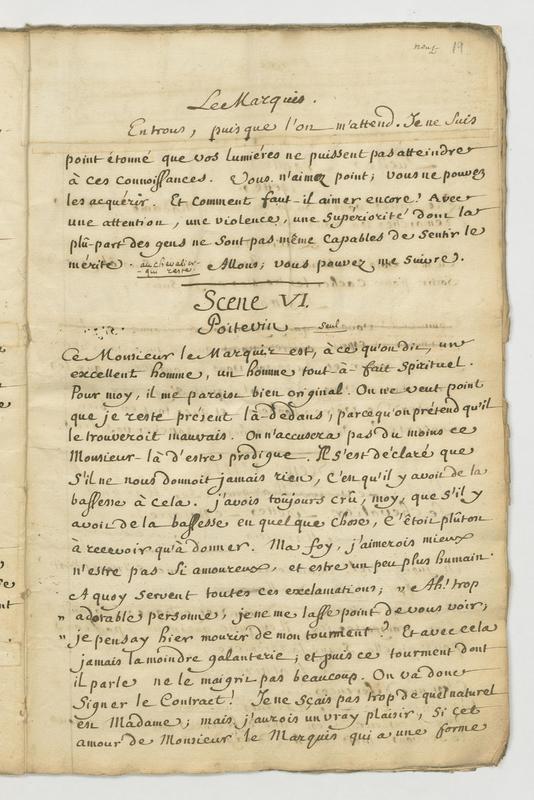 neuf 19
Le Marquis.
Entrons, puisque l'on m'attend. Je ne suis
point étonné que vos lumiéres ne puissent pas atteindre
à ces connoissances. Vous n'aimez point; vous ne pouvez
les acquérir. Et comment faut-il aimer encore! Avec
une attention, une violence, une supériorité dont la
plû-part des gens ne sont pas même capables de sentir le
mérite. au chevalier qui reste Allons; vous pouvez me suivre.
Scene VI.
Poitevin seul
Ce Monsieur le Marquis est, à ce qu'on dit, un
excellent homme, un homme tout à-fait spirituel.
Pour moy, il me paroist bien original. On ne veut point
que je reste présent là-dedans, parcequ'on prétend qu'il
le trouveroit mauvais. On n'accusera pas du moins ce
Monsieur-là d'estre prodigue. Il s'est déclaré que
s'il ne nous donnoit jamais rien, c'est qu'il y avoit de la
bassesse à cela. j'avois toûjours crû, moy, que s'il y
avoit de la bassesse en quelque chose, c'étoit plûton
à recevoir qu'à donner. Ma foy, j'aimerois mieux
n'estre pas si amoureux, et estre un peu plus humain.
A quoy servent toutes ces exclamations; " Ah! trop
" adorable personne, je ne me lasse point de vous voir;
" je pensay hier mourir de mon tourment? Et avec cela
jamais la moindre galanterie; et puis ce tourment dont
il parle ne le maigrit pas beaucoup. On va donc
signer le Contract! Je ne sçais pas trop de quel naturel
est Madame; mais j'aurois un vray plaisir, si cet
amour de Monsieur le Marquis qui a une forme